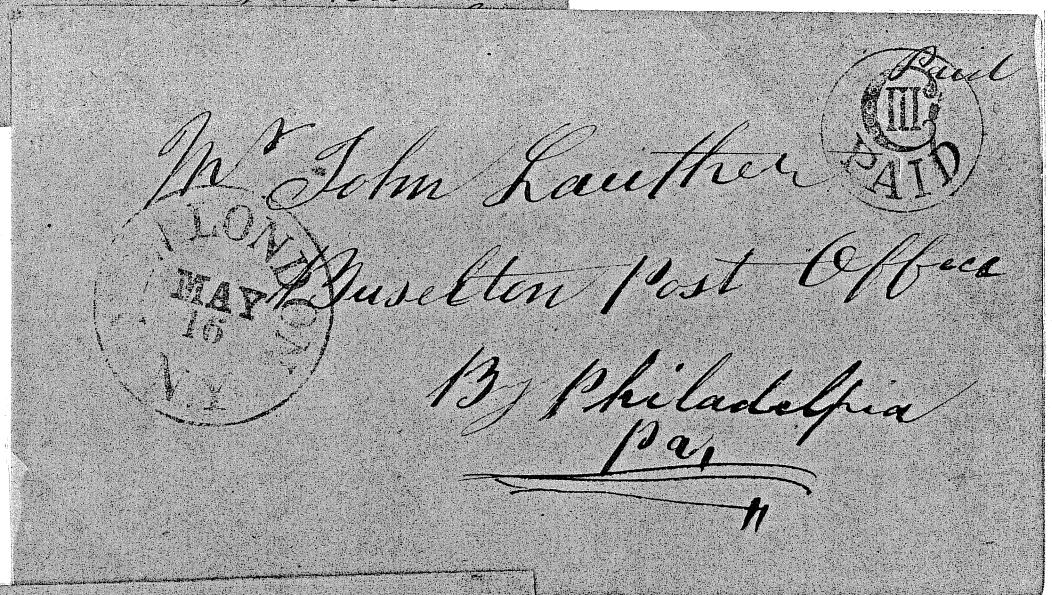 Paid
III
PAID
Mr John Lauther
LONDON
MAY
16
N.Y.
Buselton Post Office
By Philadelpia
Pa,
"